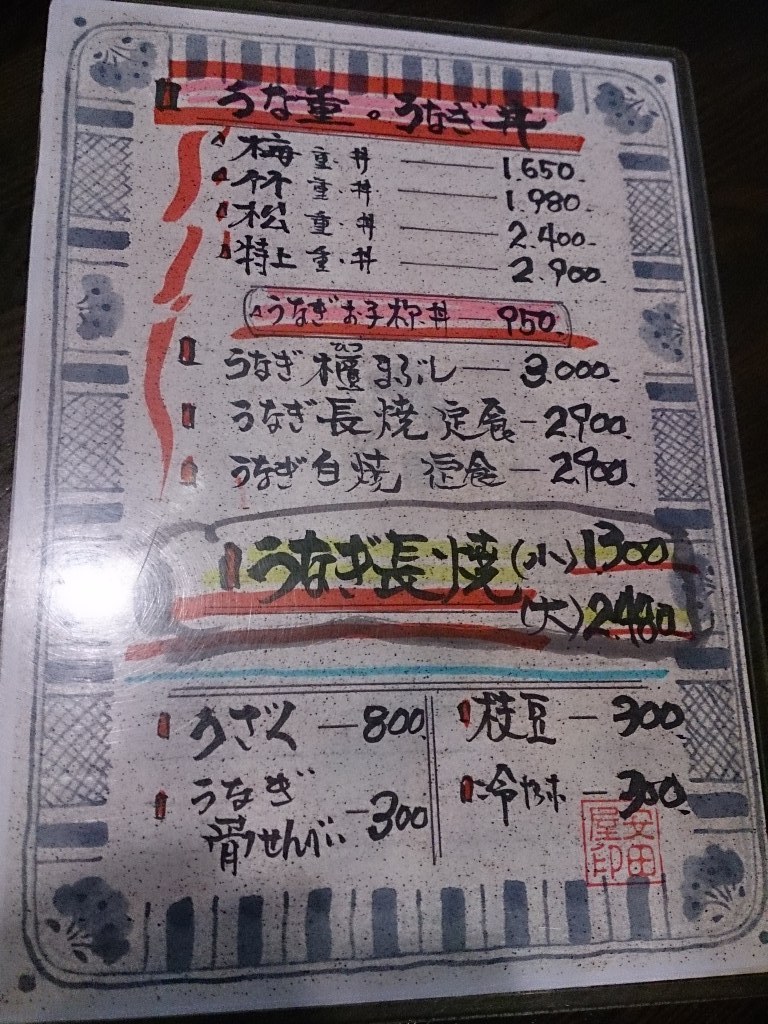 うな重。うなぎ丼
梅重・丼 1.650.
竹重・丼 1.980.
松重・丼 2.400.
特上重・丼 2.900.
うなぎお子様丼 950.
うなぎ櫃まぶし 3.000.
ひつ
うなぎ長焼定食 2.900.
うなぎ白焼定食 2.900.
うなぎ長焼(小)1300
(大)2480
うざく 800.
うなぎ
骨せんべい 300
枝豆 300.
冷やっ 300.
安田
屋印